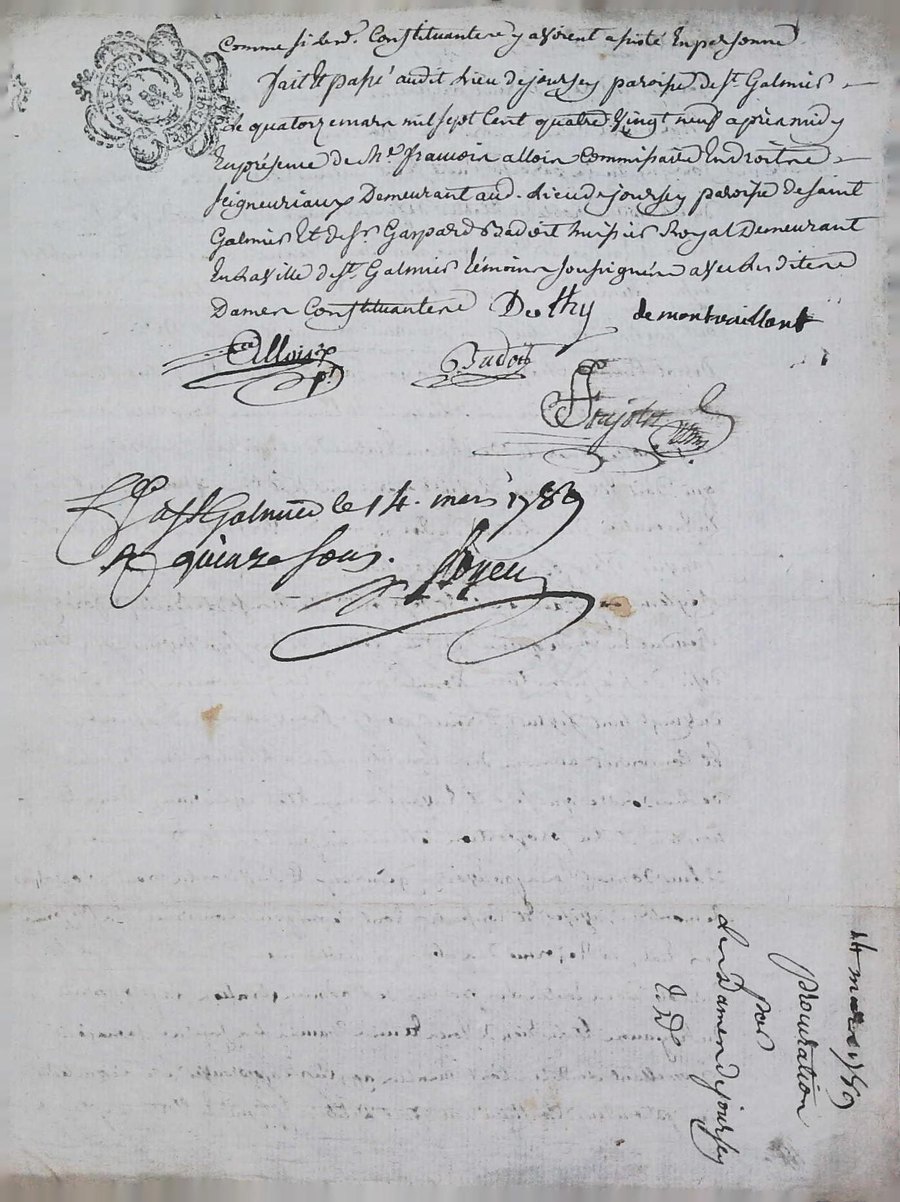 Comme si lesd. Constituantes y avoient assisté en personne
fait et passé audit lieu de joursey paroisse de St. Galmier
le quatorze mars mil sept cent quatre vingt neuf après midy
En présence de Me. francois alloin Commissaire En droits
seigneuriaux Demeurant aud. Lieu de joursey paroisse de saint
Galmier Et de Sr. Gaspard Badoit huissier Royal Demeurant
En la ville de St. Galmier témoins soussignés avec lesdites
Dames Constituantes
de montrouillant
Alloin
Badoit
a St Galmier le 14. mars 1789
quinze sous.
14 mars 1789
procuration
par
des Dames de joursey